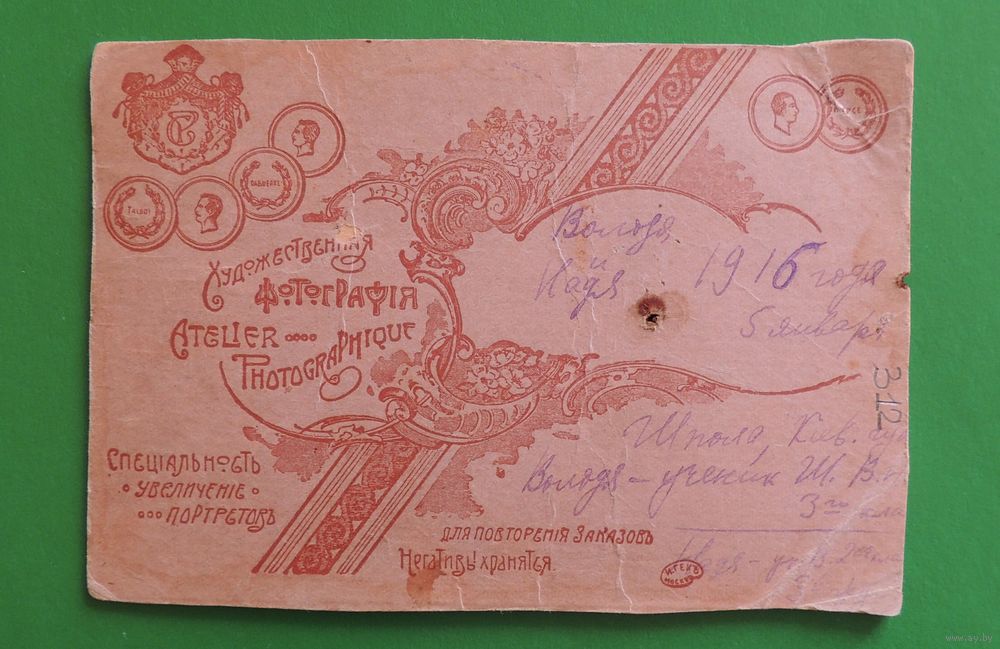 TALBOT
DAGUERRE
NIEPCE
Художественная
Фотографія
ATELIER
PHOTOGRAPHIQUE
Спеціальность
увеличеніе
портретовъ
для повторенія заказовъ
Негативы хранятся.
И. ГЕКЪ
МОСКВА
Володя
и
Надя 1916 годя
5 январ
312
Шпола, Киев. губ
Володя – ученик Ш. В. Н.
3го кла
Надя – уч. В. 2го кла
www.ay.by